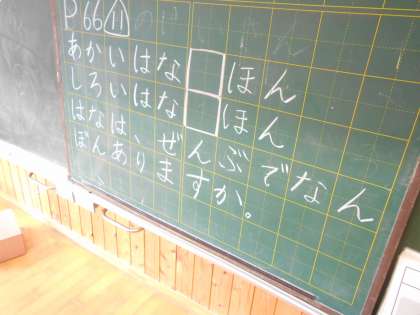 P66⑪
あかいはな□ほん
しろいはな□ほん
はなは、ぜんぶでなん
ぼんありますか。